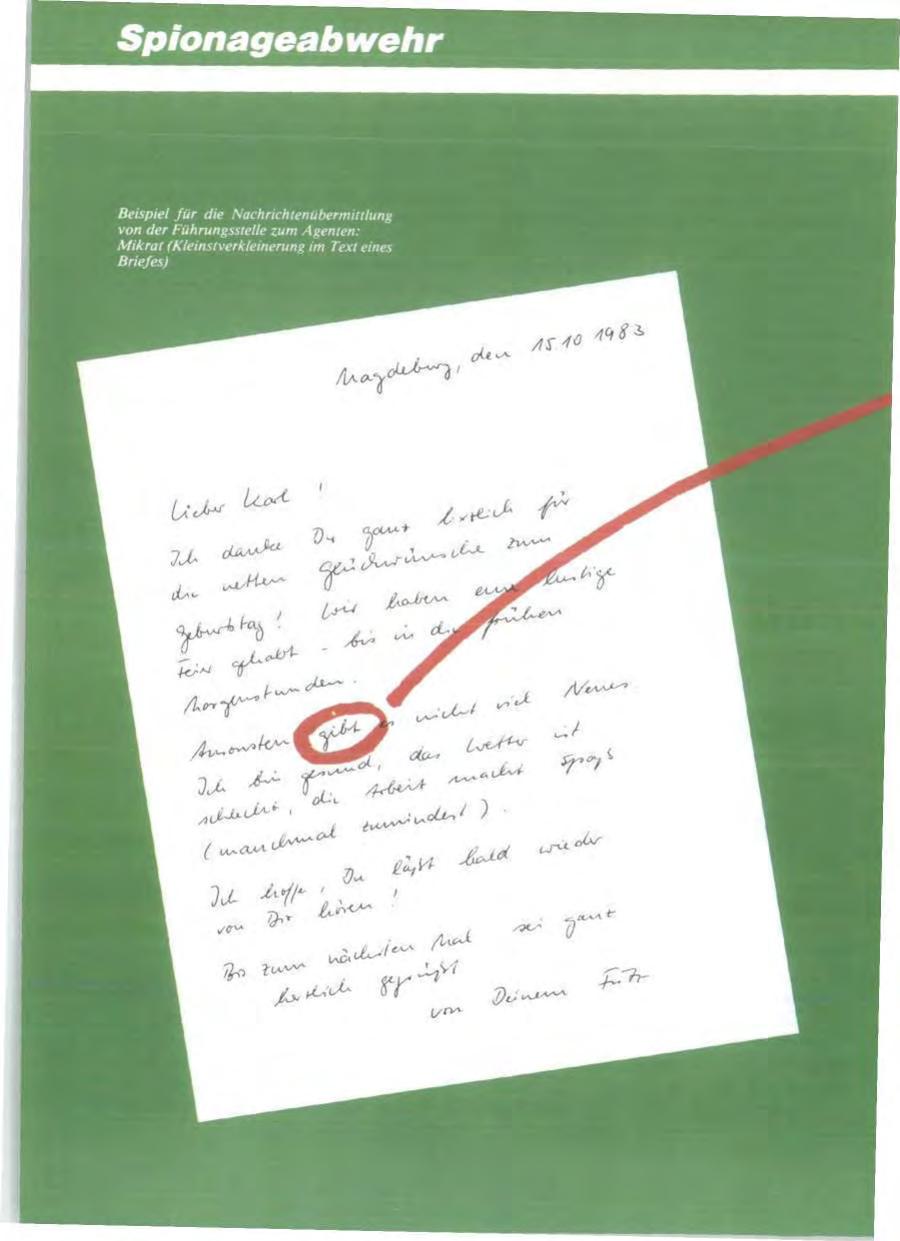 Spionageabwehr
Beispiel für die Nachrichtenübermittlung
von der Führungsstelle zum Agenten:
Mikrat (Kleinstverkleinerung im Text eines
Briefes)
Magdeburg, den 15.10 1983
Lieber Karl !
Ich danke Dir ganz herzlich für
die netten Glückwünsche zum
Geburtstag! Wir haben eine lustige
Feier gehabt - bis in die frühen
Morgenstunden.
Ansonsten gibt es nicht viel Neues.
Ich bin gesund, das Wetter ist
schlecht, die Arbeit macht Spaß
(manchmal zumindest).
Ich hoffe, Du läßt bald wieder
von Dir hören!
Bis zum nächsten Mal sei ganz
herzlich gegrüßt
von Deinem Fritz